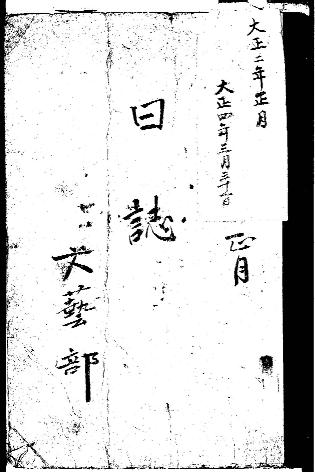 大正二年正月
大正四年三月三十一日
正月
日誌
文藝部